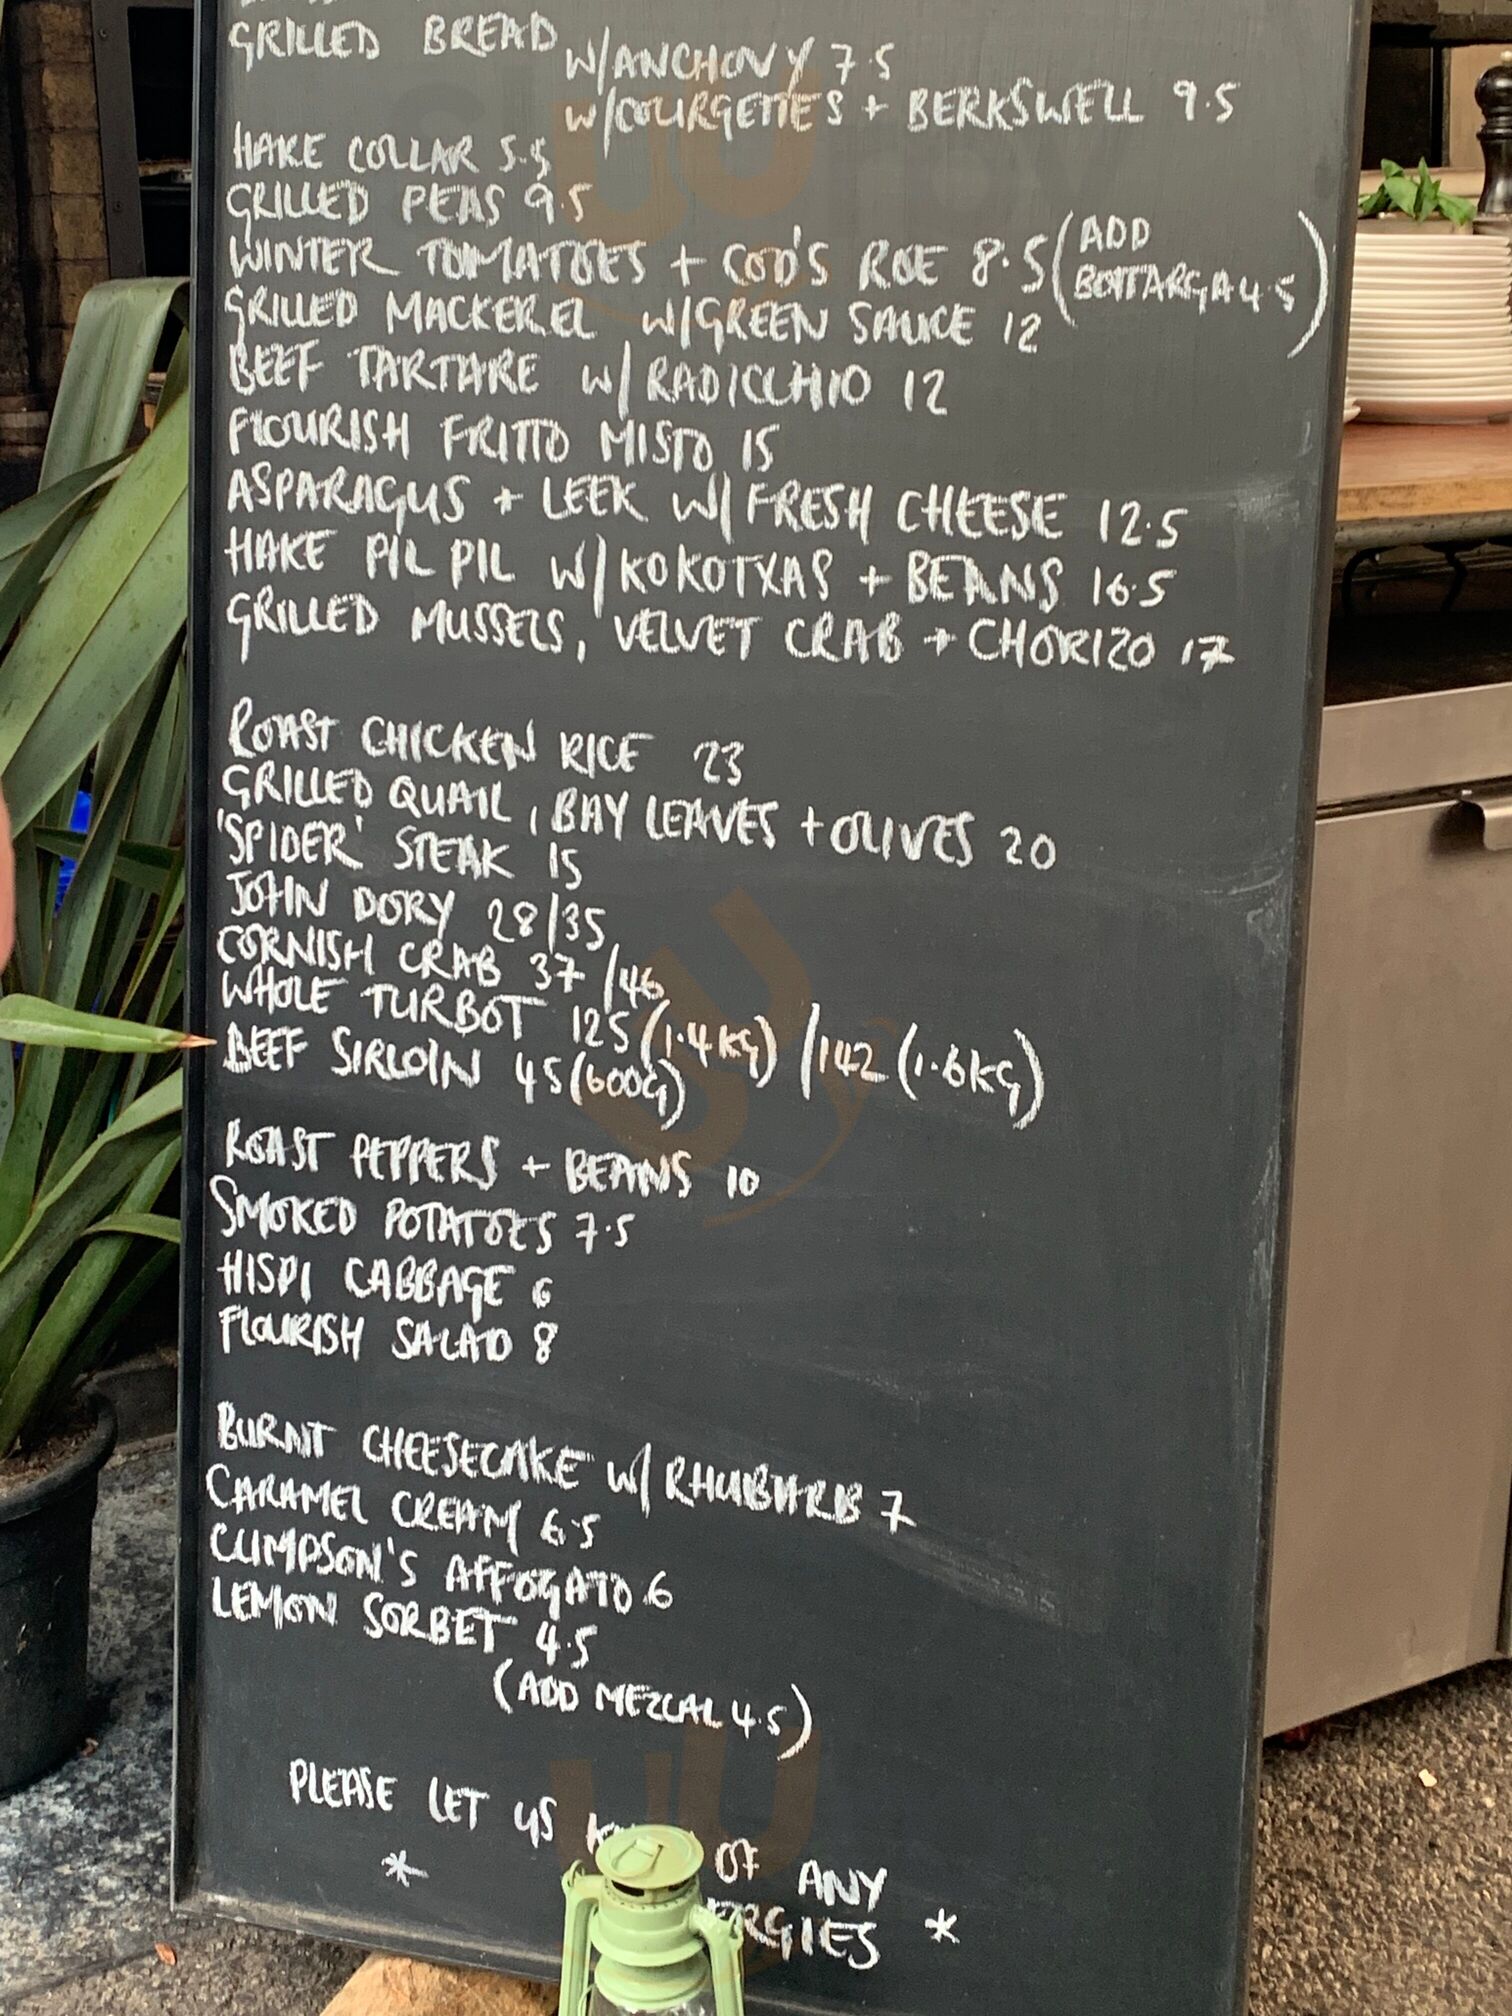 GRILLED BREAD
W/ANCHOVY 7.5
W/COURGETTES + BERKSWELL 9.5
HAKE COLLAR 5.5
GRILLED PEAS 9.5
WINTER TOMATOES + COD'S ROE 8.5 (ADD BOTTARGA 4.5)
GRILLED MACKEREL W/GREEN SAUCE 12
BEEF TARTARE W/RADICCHIO 12
FLOURISH FRITTO MISTO 15
ASPARAGUS + LEEK W/FRESH CHEESE 12.5
HAKE PIL PIL W/KOKOTXAS + BEANS 16.5
GRILLED MUSSELS, VELVET CRAB + CHORIZO 17
ROAST CHICKEN RICE 23
GRILLED QUAIL, BAY LEAVES + OLIVES 20
'SPIDER' STEAK 15
JOHN DORY 28/35
CORNISH CRAB 37/46
WHOLE TURBOT 125 (1.4KG) /142 (1.6KG)
BEEF SIRLOIN 45 (600G)
ROAST PEPPERS + BEANS 10
SMOKED POTATOES 7.5
HISPI CABBAGE 6
FLOURISH SALAD 8
BURNT CHEESECAKE W/RHUBARB 7
CARAMEL CREAM 6.5
CLIMPSON'S AFFOGATO 6
LEMON SORBET 4.5
(ADD MEZCAL 4.5)
PLEASE LET US OF ANY
* ERGIES *